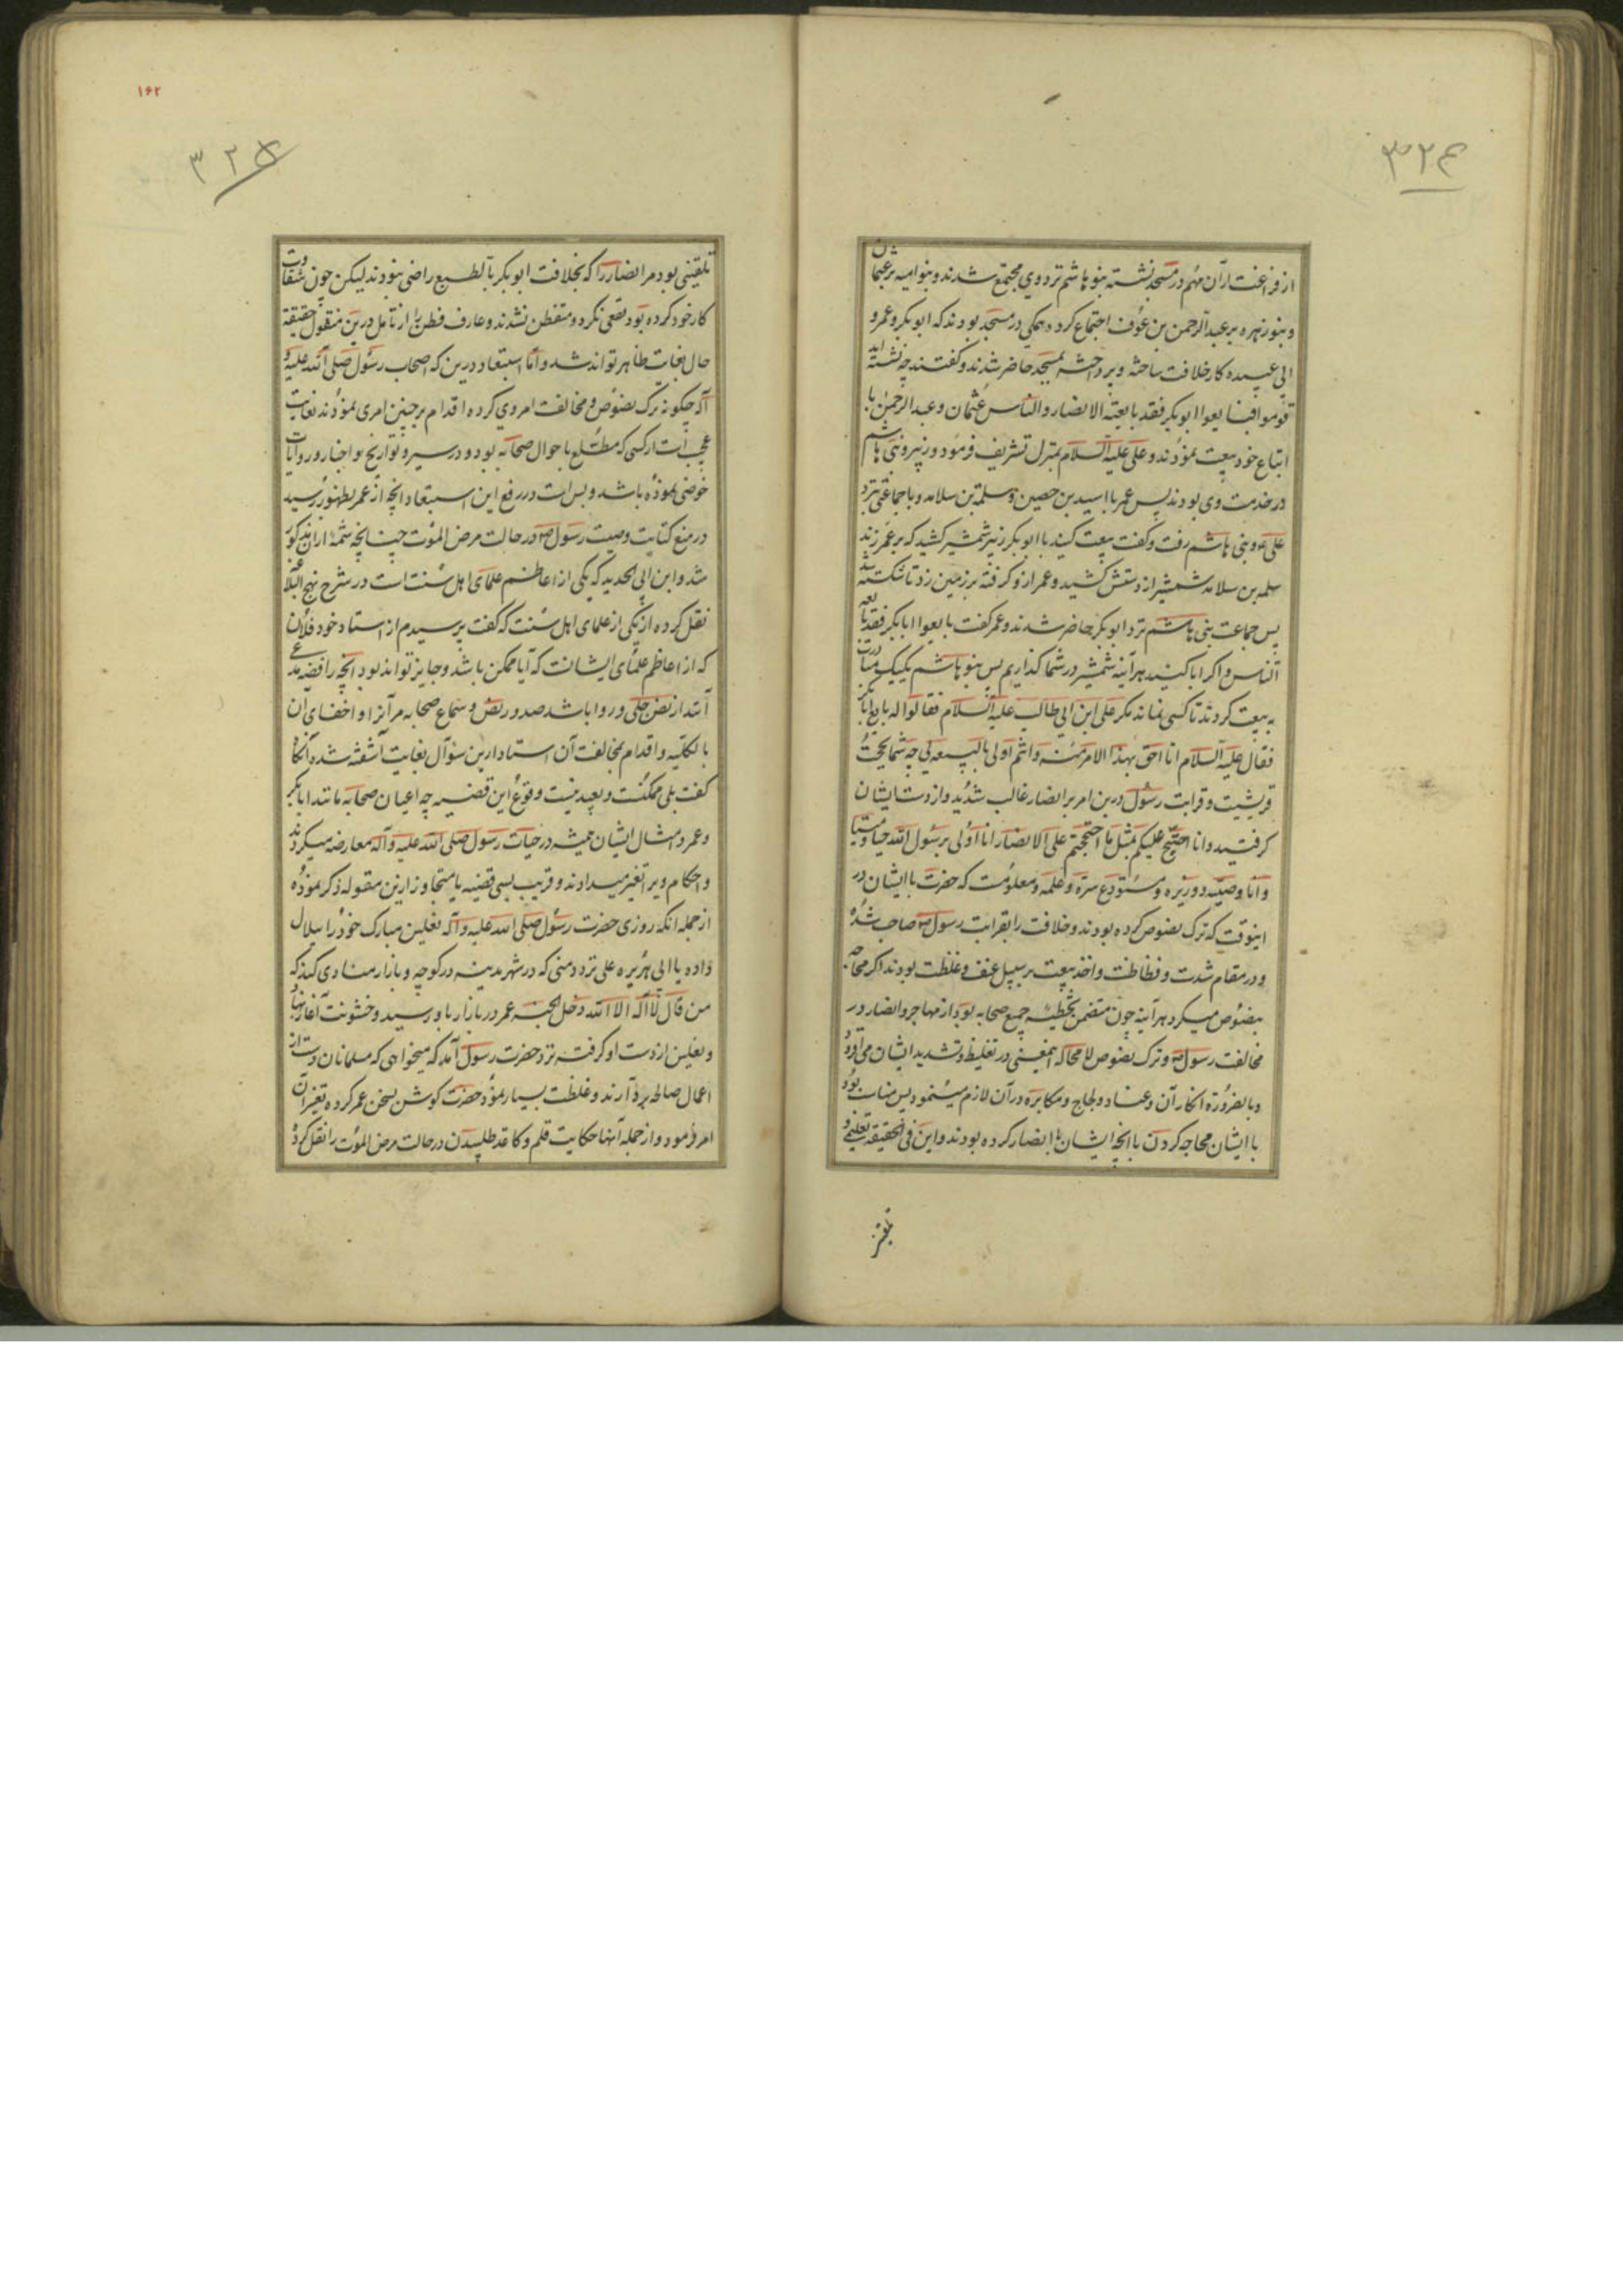 ۳۲۴
از فراغت ازآن مهم در مسجد نشسته بنو هاشم نزد وی مجتمع شدند و بنو امیه بر عثمان
و بنو زهره بر عبدالرحمن بن عوف اجتماع کرده همکی در مسجد بودند که ابو بکر و عمر و
ابی عبیده کار خلافت ساخته و پرداخته بمسجد حاضر شدند و کفتند چه نشسته اید
قوموا فبایعوا ابو بکر فقد بایعته الانصار والناس عثمان و عبد الرحمن با
اتباع خود بیعت نمودند و علی علیه السلام بمنزل تشریف فرمود و زبیر و بنی هاشم
در خدمت وی بودند پس عمر با اسید بن حصین و سلمة بن سلامه و با جماعتی نزد
علی ع و بنی هاشم رفت و کفت بیعت کنید با ابو بکر زبیر شمشیر کشید که بر عمر زند
سلمه بن سلامه شمشیر از دستش کشید و عمر ازو کرفته بر زمین زد تا شکسته شد
پس جماعت بنی هاشم نزد ابو بکر حاضر شدند و عمر کفت بایعوا ابابکر فقد بایعه
الناس و اکر ابا کنید هرآینه شمشیر در شما کذاریم پس بنو هاشم یک یک مبادرت
به بیعت کردند تا کسی نماند مکر علی ابن ابی طالب علیه السلام فقالوا له بایع ابابکر
فقال علیه السلام انا احق بهذا الامر منه وانتم اولی بالبیعه لی چه شما بحجت
قریشیت و قرابت رسول درین امر بر انصار غالب شدید و از دست ایشان
کرفتید و انا احتج علیکم بمثل ما احتججتم علی الانصار انا اولی برسول الله حیا و میتا
و انا وصیه و وزیره و مستودع سره و علمه و معلومست که حضرت با ایشان در
اینوقت که ترک نصوص کرده بودند و خلافت را بقرابت رسول ص صاحب شده
و در مقام شدت و فظاظت و اخذ بیعت بر سبیل عنف و غلظت بودند اکر محاجه
بنصوص میکرد هرآینه چون متضمن تخطیه جمیع صحابه بود از مهاجر و انصار در
مخالفت رسول ص و ترک نصوص لا محاله اینمعنی در تغلیظ و تشدید ایشان می افزود
و بالضروره انکار آن و عناد و لجاج و مکابره در آن لازم مینمود پس مناسب بود
با ایشان محاجه کردن با آنچه ایشان با انصار کرده بودند و این فی الحقیقه تعلیم و
۱۶۲
۳۲۵
تلقینی بود مر انصار را که بخلافت ابو بکر بالطبع راضی نبودند لیکن چون شقاوت
کار خود کرده بود نفعی نکرد و متفطن نشدند و عارف فطن را از تامل درین منقول حقیقة
حال بغایت ظاهر تواند شد و اما استبعاد درین که اصحاب رسول صلی الله علیه و
آله چکونه ترک نصوص و مخالفت امر وی کرده اقدام بر چنین امری نمودند بغایت
عجب است از کسی که مطلع باحوال صحابه بود و در سیر و تواریخ و اخبار و روایات
خوضی نموده باشد و بس است در رفع این استبعاد انچه از عمر بظهور رسید
در منع کتابت وصیت رسول ص در حالت مرض الموت چنانچه شمهٔ ازان مذکور
شد و ابن ابی الحدید که یکی از اعاظم علمای اهل سنت است در شرح نهج البلاغه
نقل کرده از یکی از علمای اهل سنت که کفت پرسیدم از استاد خود فلان
که از اعاظم علمای ایشانست که آیا ممکن باشد و جایز تواند بود انچه رافضه مدعی
آنند از نص جلی و روا باشد صدور نص و سماع صحابه مر آنرا و اخفای آن
بالکلیه و اقدام بمخالفت آن استاد ازین سؤال بغایت آشفته شد و آنکاه
کفت بلی ممکنست و بعید نیست وقوع این قضیه چه اعیان صحابه مانند ابابکر
و عمر و امثال ایشان همیشه در حیات رسول صلی الله علیه و آله معارضه میکردند
و احکام ویرا تغیر میدادند و قریب بسی قضیه یا متجاوز ازین مقوله ذکر نموده
از جمله انکه روزی حضرت رسول صلی الله علیه و آله نعلین مبارک خود را ببلال
داده یا ابی هریره علی تردد منی که در شهر مدینه در کوچه و بازار منادی کند که
من قال لا اله الا الله دخل الجنه عمر در بازار باو رسید و خشونت آغاز نهاد
و نعلین از دست او کرفته نزد حضرت رسول آمد که میخواهی که مسلمانان دست از
اعمال صالحه بردارند و غلظت بسیار نمود حضرت کوش بسخن عمر کرده تغیر آن
امر فرمود و از جمله آنها حکایت قلم و کاغذ طلبیدن در حالت مرض الموت را نقل کرد